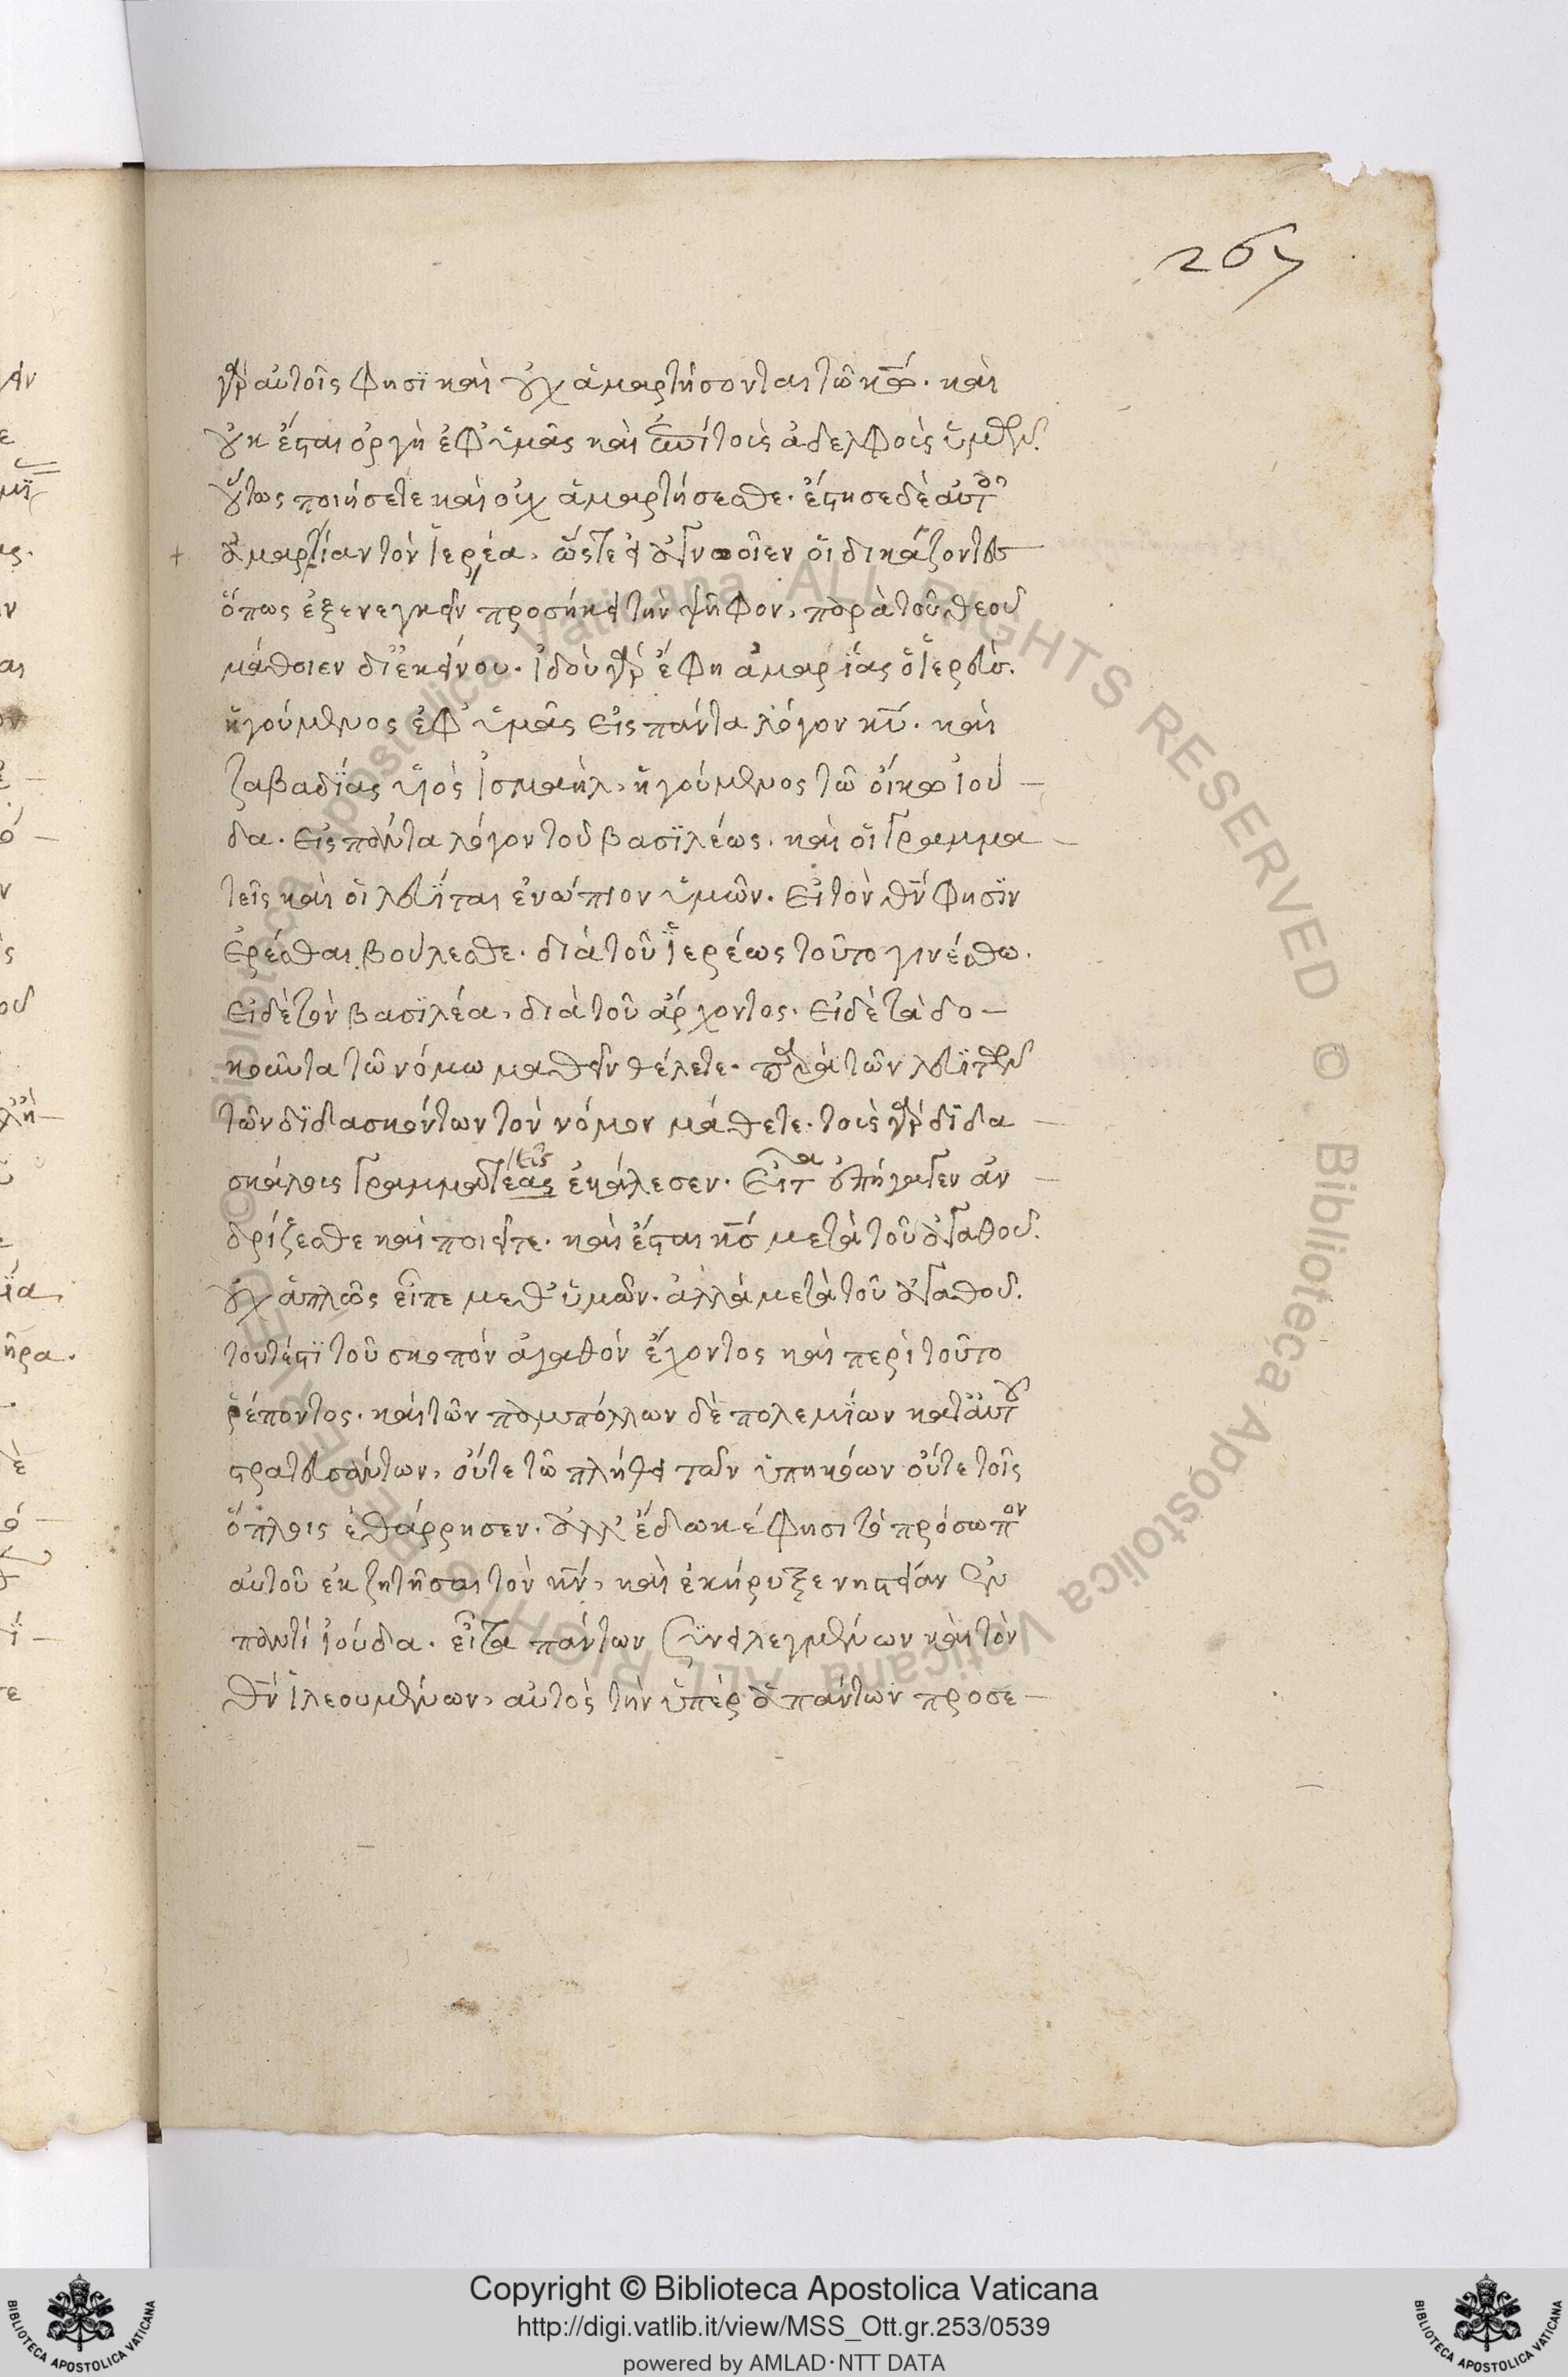 267
γὰρ αὐτοῖς φησὶ καὶ οὐχ ἁμαρτήσονται τῶ κω. καὶ
οὐκ ἔσται ὀργὴ ἐφ' ὑμᾶς καὶ ἐπὶ τοὶς ἀδελφοὶς ὑμῶν.
οὕτως ποιήσετε καὶ οὐχ ἁμαρτήσεσθε. ἔστησε δὲ αὐτ
ἀμαρίαν τὸν ἱερέα, ὥστε εἰ ἀγνοοῖεν οἱ δικάζοντες
ὅπως ἐξενεγκεῖν προσήκει τὴν ψῆφον, παρὰ τοῦ θεοῦ
μάθοιεν δι' ἐκείνου. ἰδοὺ γὰρ ἔφη ἀμαρίας ὁ ἱερεὺς.
ἡγούμενος ἐφ' ὑμᾶς εἰς πάντα λόγον κυ. καὶ
ζαβαδίας υἱὸς ἰσμαὴλ, ἡγούμενος τῶ οἴκω ἰού –
δα. εἰς πάντα λόγον τοῦ βασιλέως. καὶ οἱ γραμμα –
τεῖς καὶ οἱ λευῖται ἐνώπιον ὑμῶν. εἰ τὸν θν φησὶν
ἐρέσθαι βούλεσθε. διὰ τοῦ ἱερέως τοῦτο γινέσθω.
εἰ δὲ τὸν βασιλέα, διὰ τοῦ ἄρχοντος. εἰ δὲ τὰ δο –
κοῦντα τῶ νόμω μαθεῖν θέλετε. παρὰ τῶν λευϊτῶν
τῶν διδασκόντων τὸν νόμον μάθετε. τοὶς γὰρ διδα –
σκάλοις γραμματέας εῖς ἐκάλεσεν. εἶτα ἐπήγαγεν ἀν –
δρίζεσθε καὶ ποιεῖτε. καὶ ἔσται κς μετὰ τοῦ ἀγαθοῦ.
οὐχ ἁπλῶς εἶπε μεθ' ὑμῶν. ἀλλὰ μετὰ τοῦ ἀγαθοῦ.
τουτέστι τοῦ σκοπὸν ἀγαθὸν ἔχοντος καὶ περὶ τοῦτο
ῥέποντος. καὶ τῶν παμπόλλων δὲ πολεμίων κατ' αὐτοῦ
στρατευσάντων, οὔτε τῶ πλήθει τῶν ὑπηκόων οὔτε τοῖς
ὅπλοις ἐθάρρησεν. ἀλλ' ἔδωκέ φησι τὸ πρόσωπον
αὐτοῦ ἐκζητῆσαι τὸν κν, καὶ ἐκήρυξε νηστείαν ἐν
παντὶ ἰούδα. εἶτα πάντων συνειλεγμένων καὶ τὸν
θν ἱλεουμένων, αὐτὸς τὴν ὑπὲρ ἁπάντων προσε –
Copyright © Biblioteca Apostolica Vaticana
http://digi.vatlib.it/view/MSS_Ott.gr.253/0539
powered by AMLAD·NTT DATA